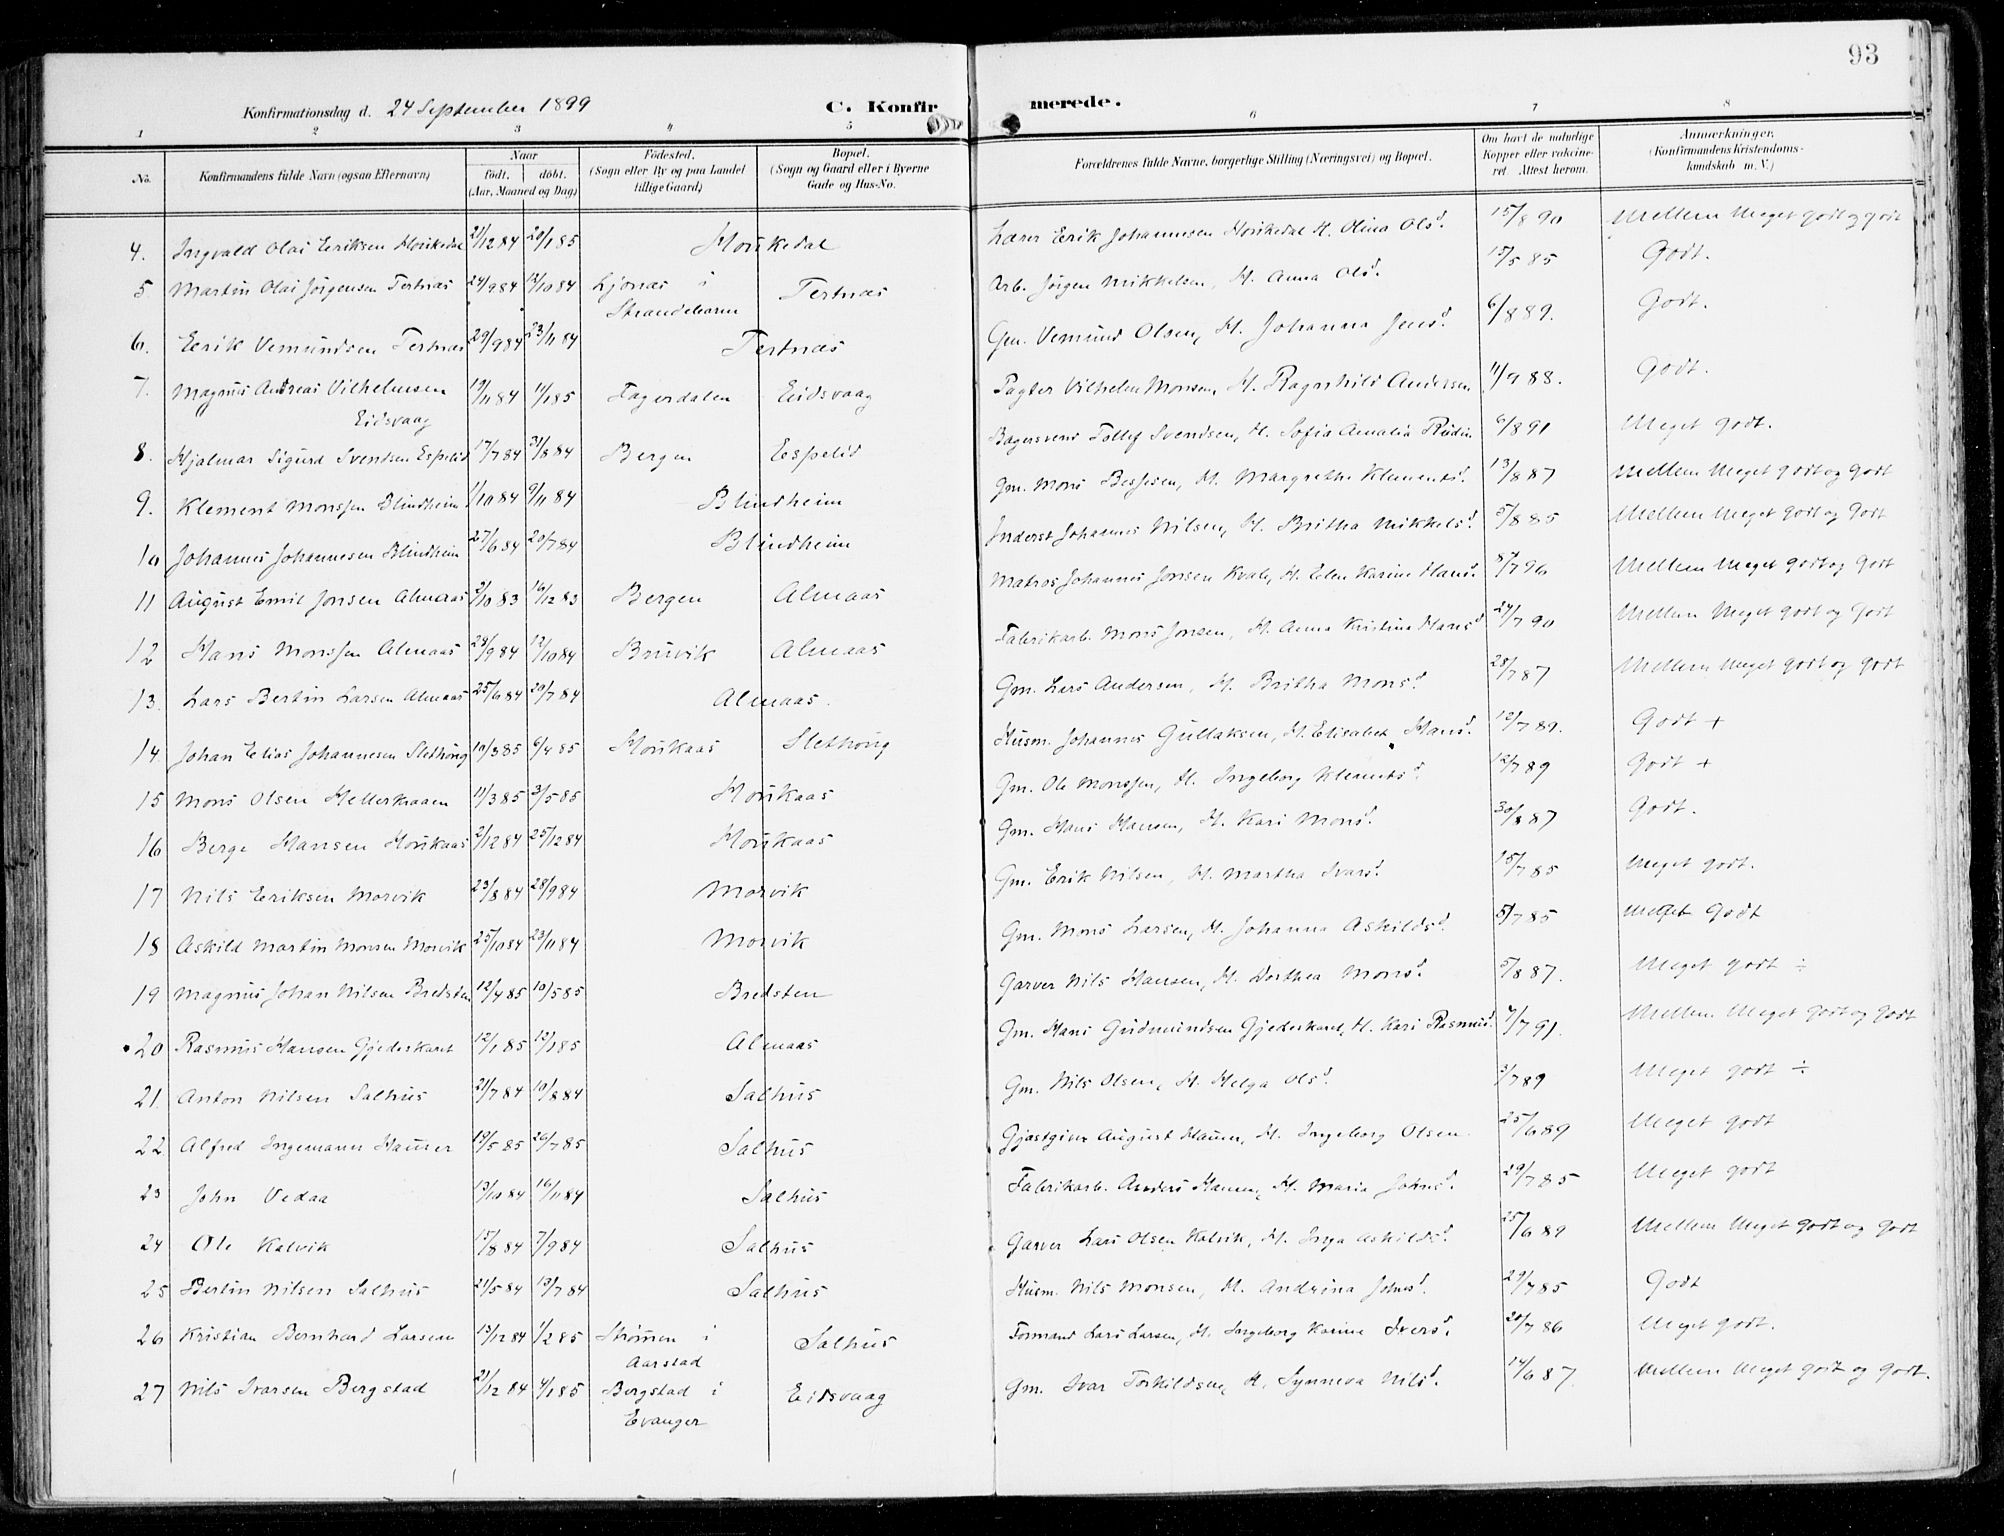 93
Konfirmationsdag d. 24 September 1899 C. Konfirmerede.
1 2 3 4 5 6 7 8
No. Konfirmandens fulde Navn (ogsaa Efternavn) Naar født. døbt. (Aar, Maaned og Dag) Fødested. (Sogn eller By og paa Landet tillige Gaard) Bopæl. (Sogn og Gaard eller i Byerne Gade og Hus-No. Forældrenes fulde Navne, borgerlige Stilling (Næringsvei) og Bopæl. Om havt de naturlige Kopper eller vakcineret. Attest herom. Anmærkninger. (Konfirmandens Kristendomskundskab m. V.)
4. Ingvald Olai Eriksen Hordkedal 21/12 84 20/1 85 Lærer Erik Johannesen H. Olina Olsd. 15/8 90 Mellem Meget godt og godt
5 Martin Olai Jørgensen Tertnæs 24/9 84 12/10 84 Ljonæs i Strandebarm Tertnæs Arb. Jørgen Mikkelsen, H. Anna Olsd. 15/5 85 Godt.
6. Eerik Vemundsen Tertnæs 29/9 84 23/11 84 Tertnæs Gm. Vemund Olsen, H. Johanna Jensd. 6/8 89. Godt.
7. Magnus Andreas Vilhelmsen Eidsvaag 19/11 84 11/1 85 Fagerdalen Eidsvaag Pagter Vilhelm Monsen, H. Ragnhild Andersen 11/9 88. Godt.
8. Hjalmar Sigurd Svendsen Espelid 17/7 84 31/8 84 Bergen Espelid Bagersvend Tollef Svendsen, H. Sofia Amalia 6/8 91 Meget godt.
9. Klement Monssen Blindheim 1/10 84 9/11 84 Blindheim Gm. Mons Bessesen, H. Margrethe Klementsd. 13/8 87 Mellem Meget godt og godt
10 Johannes Johannesen Blindheim 27/6 84 20/7 84 Blindheim Inderst Johannes Nilsen, H. Britha Mikkelsd. 5/8 85 Mellem Meget godt og godt
11 August Emil Jonsen Almaas 3/10 83 16/12 83 Bergen Almaas Matros Johannes Jonsen Kvale, H. Elen Karine Hansd. 8/7 96 Mellem Meget godt og godt
12 Hans Monssen Almaas 24/9 84 12/10 84 Bruvik Almaas Fabrikarb. Mons Jonsen, H. Anna Kristine Hansd 24/7 90 Mellem Meget godt og godt
13. Lars Bertin Larsen Almaas 25/6 84 20/7 84 Almaas. Gm. Lars Andersen, H. Britha Monsd. 28/7 87 Mellem Meget godt og godt
14 Johan Elias Johannesen Slethoug 10/3 85 6/4 85 Houkaas Slethoug Husm. Johannes Gullaksen, H. Elisabet Hansd. 12/7 89. Godt +
15 Mons Olsen Hellerhaaen 11/3 85 3/5 85 Houkaas Gm. Ole Monssen, H. Ingeborg Klemetsd. 12/7 89 Godt +
16 Berge Hansen Houkaas 2/12 84 25/12 84 Houkaas Gm. Hans Hansen, H. Kari Monsd. 30/8 87 Godt.
17 Nils Eriksen Morvik 23/8 84 28/9 84 Morvik Gm. Erik Nilsen, H. Martha Ivarsd. 15/7 85 Meget godt.
18 Askild Martin Monsen Morvik 25/10 84 23/11 84 Morvik Gm. Mons Larsen, H. Johanna Askildsd. 5/7 85 Meget Godt
19 Magnus Johan Nilsen Bredsten 12/4 85 10/5 85 Bredsten Garver Nils Hansen, H. Dorthea Monsd. 5/8 87. Meget godt ÷
20 Rasmus Hansen Gjederskaret 12/1 85 13/1 85 Almaas Gm. Hans Gudmundsen Gjederskaret, H. Kari Rasmusd. 4/7 91. Mellem Meget godt og godt
21. Anton Nilsen Salhus 21/7 84 10/8 84 Salhus Gm. Nils Olsen, H. Helga Olsd. 3/7 89 Meget godt ÷
22 Alfred Ingemann Hauser 19/5 85 26/7 85 Salhus Gjæstgiver August, H. Ingeborg Olsen 25/6 89 Meget godt
23 John Vedaa 13/10 84 16/11 84 Salhus Fabrikarb. Anders Hansen, H. Maria Johnsd. 29/7 85 Meget godt
24 Ole Kalvik 15/8 84 7/9 84 Salhus Garver Lars Olsen Kalvik, H. Inga Askildsd. 25/6 89 Mellem Meget godt og godt
25 Bertin Nilsen Salhus 21/5 84 13/7 84 Salhus Husm. Nils Monsen, H. Andrina Johnsd. 29/7 85 Godt
26 Kristian Bernhard Larsen 13/12 84 1/2 85 Strømen i Aarstad Salhus Formand Lars Larsen, H. Ingeborg Karine Iversd. 20/7 86 Meget godt.
27 Nils Ivarsen Bergstad 21/12 84 4/1 85 Bergstad i Evanger Eidsvaag Gm. Ivar Torkildsen, H. Synneva Nilsd. 14/6 87. Mellem Meget godt og godt.